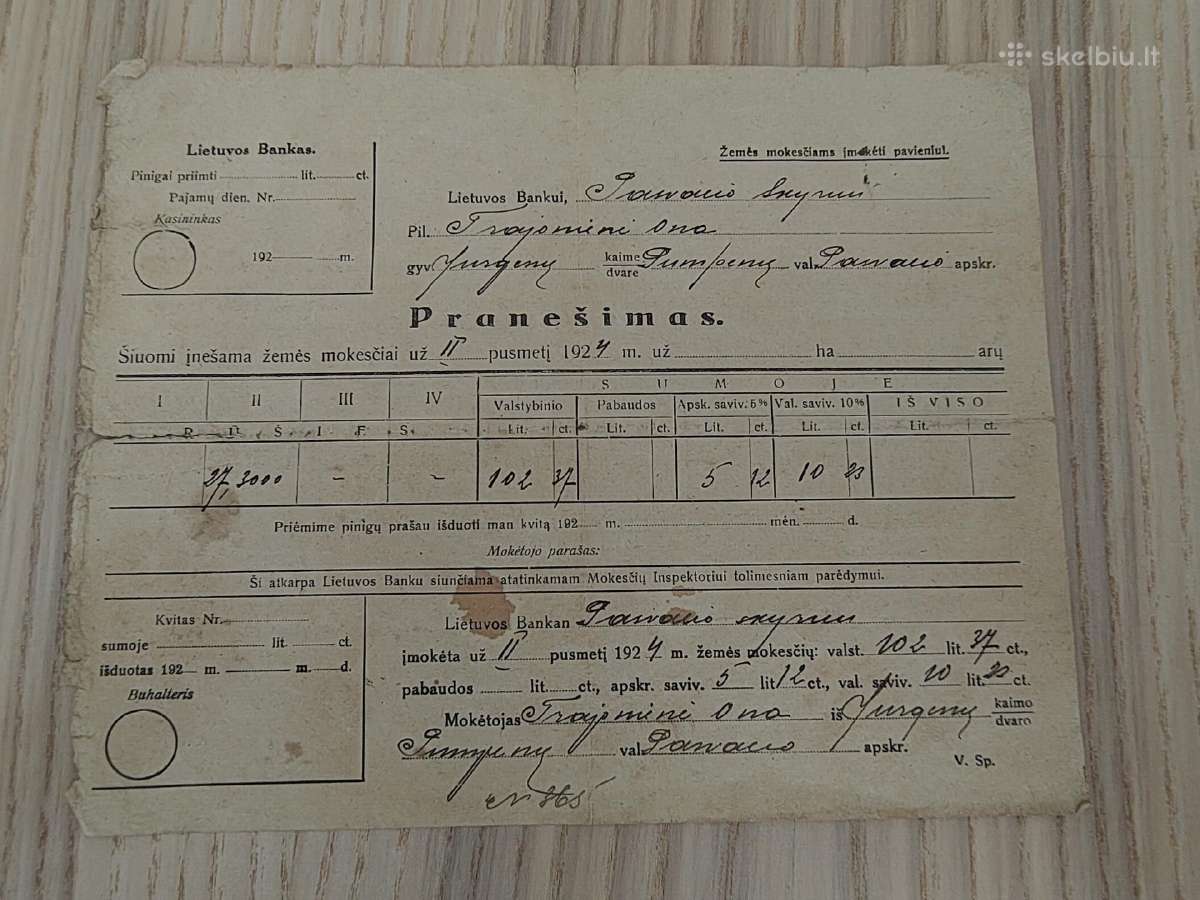 skelbiu.lt
Lietuvos Bankas.
Pinigai priimti lit. ct.
Pajamų dien. Nr.
Kasininkas
192 m.
Žemės mokesčiams įmokėti pavieniui.
Lietuvos Bankui,
Pil. Trajominė Ona
gyv. Jurgėnų kaime dvare Pumpėnų val. apskr.
Pranešimas.
Šiuomi įnešama žemės mokesčiai už II pusmetį 1924 m. už ha arų
I II III IV SUMOJE
Valstybinio Pabaudos Apsk. saviv. 5% Val. saviv. 10% IŠ VISO
RŪŠIES Lit. ct. Lit. ct. Lit. ct. Lit. ct. Lit. ct.
27,3000 – – 102 37 5 12 10 23
Priėmime pinigų prašau išduoti man kvitą 192 m. mėn. d.
Mokėtojo parašas:
Ši atkarpa Lietuvos Banku siunčiama atatinkamam Mokesčių Inspektoriui tolimesniam parėdymui.
Kvitas Nr.
sumoje lit. ct.
išduotas 192 m. m. d.
Buhalteris
Lietuvos Bankan
įmokėta už II pusmetį 1924 m. žemės mokesčių: valst. 102 lit. 37 ct.,
pabaudos lit. ct., apskr. saviv. 5 lit 12 ct., val. saviv. 10 lit. 23 ct.
Mokėtojas Trajominė Ona iš Jurgėnų kaimo dvaro
Pumpėnų val. apskr.
V. Sp.